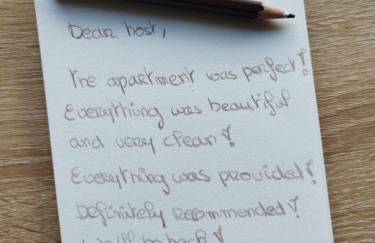 Dear host,
The apartment was perfect!
Everything was beautiful
and very clean!
Everything was provided!
Definitely recommended!
will be back!